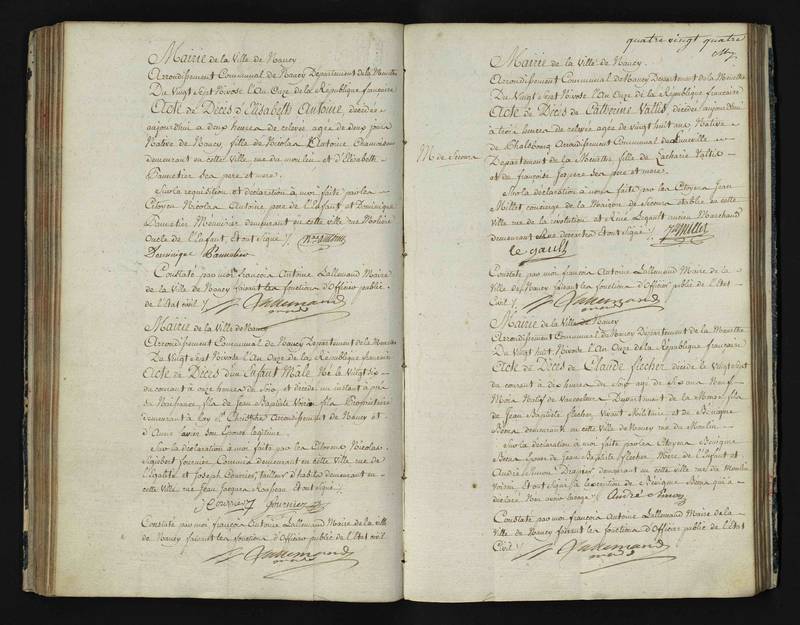 Mairie de la Ville de Nancy
Arrondissement Communal de Nancy Département de la Meurthe
Du Vingt Sept Nivose l'An Onze de la République française
Acte de Décès d'Elisabeth Antoine, décédée
aujourd'hui a deux heures de relevé, agée de deux jours
Native de Nancy, fille de Nicolas Antoine
demeurant en cette Ville rue du moulin et d'Elisabeth
ses pere et mere.
Sur la requisition et déclaration à moi faite par les
Citoyen Nicolas Antoine pere de l'Enfant et Dominique
Menuisier demeurant en cette ville rue
Oncle de l'Enfant, Et ont Signé ./.
Dominique
Constaté par moi françois Antoine Lallemand Maire
de la Ville de Nancy faisant les fonctions d'Officier public
de l'Etat civil ./. Lallemand
Mairie de la Ville de Nancy
Arrondissement Communal de Nancy Département de la Meurthe
Du Vingt Sept Nivose l'An Onze de la République française
Acte de Décès d'un Enfant Male, Né le Vingt Six
du courant à onze heures du Soir, et décédé un instant après
sa Naissance, fils de Jean Baptiste fils Propriétaire
demeurant à Arrondissement de Nancy et
d'Anne son Epouse Légitime.
Sur la déclaration à moi faite par les Citoyens Nicolas
fournier Commis demeurant en cette Ville rue de
l'Egalité et Joseph tailleur d'habits demeurant en
cette Ville rue Jean Jacques Rousseau Et ont Signé ./.
fournier
Constaté par moi françois Antoine Lallemand Maire de la ville
de Nancy faisant les fonctions d'Officier public de l'Etat civil
Lallemand
quatre vingt quatre
Mairie de la Ville de Nancy.
Arrondissement Communal de Nancy Département de la Meurthe
Du Vingt Sept Nivose l'An Onze de la République française
Acte de Décès de Catherine Vallis, décédée aujourd'hui
à trois heures de relevé agée de vingt huit ans Native
de Phalsbourg Arrondissement Communal de Luneville
Département de la Meurthe fille de Zacharie Vallis
et de françoise ses pere et mere.
M. de Secours
Sur la déclaration à moi faite par les Citoyens Jean
Millet concierge de la Maison de Secours établie en cette
Ville rue de la révolution et René Legault ancien Marchand
demeurant Rue descartes Et ont Signé ./. Millet
le gault
Constaté par moi françois Antoine Lallemand Maire de la
Ville de Nancy faisant les fonctions d'Officier public de l'Etat
Civil ./. Lallemand
Mairie de la Ville de Nancy
Arrondissement Communal de Nancy Département de la Meurthe
Du Vingt huit Nivose l'An Onze de la République française
Acte de Décès de Claude flecher décédé le Vingt Sept
du courant à dix heures du Soir agé de Neuf
Mois Natif de Vaucouleurs Département de la Meuse, fils
de Jean Baptiste flecher, Vivant Militaire et de Bénigne
demeurant en cette Ville de Nancy rue du Moulin
Sur la déclaration à moi faite par les Citoyens Bénigne
Epouse de Jean Baptiste flecher Mere de l'Enfant et
André Simon demeurant en cette ville rue du Moulin
Voisin Et ont Signé à l'exception de Bénigne qui a
déclaré Non avoir l'usage ./. André Simon
Constaté par moi françois Antoine Lallemand Maire de la
Ville de Nancy faisant les fonctions d'Officier public de l'Etat
Civil ./. Lallemand